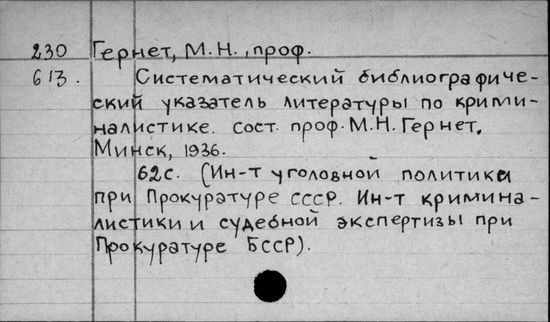 230 Гернет, М.Н., проф.
613. Систематический библиографиче-
ский указатель литературы по крими-
налистике. сост. проф. М.Н. Гернет.
Минск, 1936.
62с. (Ин-т уголовной политики
при Прокуратуре СССР. Ин-т кримина-
листики и судебной экспертизы при
Прокуратуре БССР).